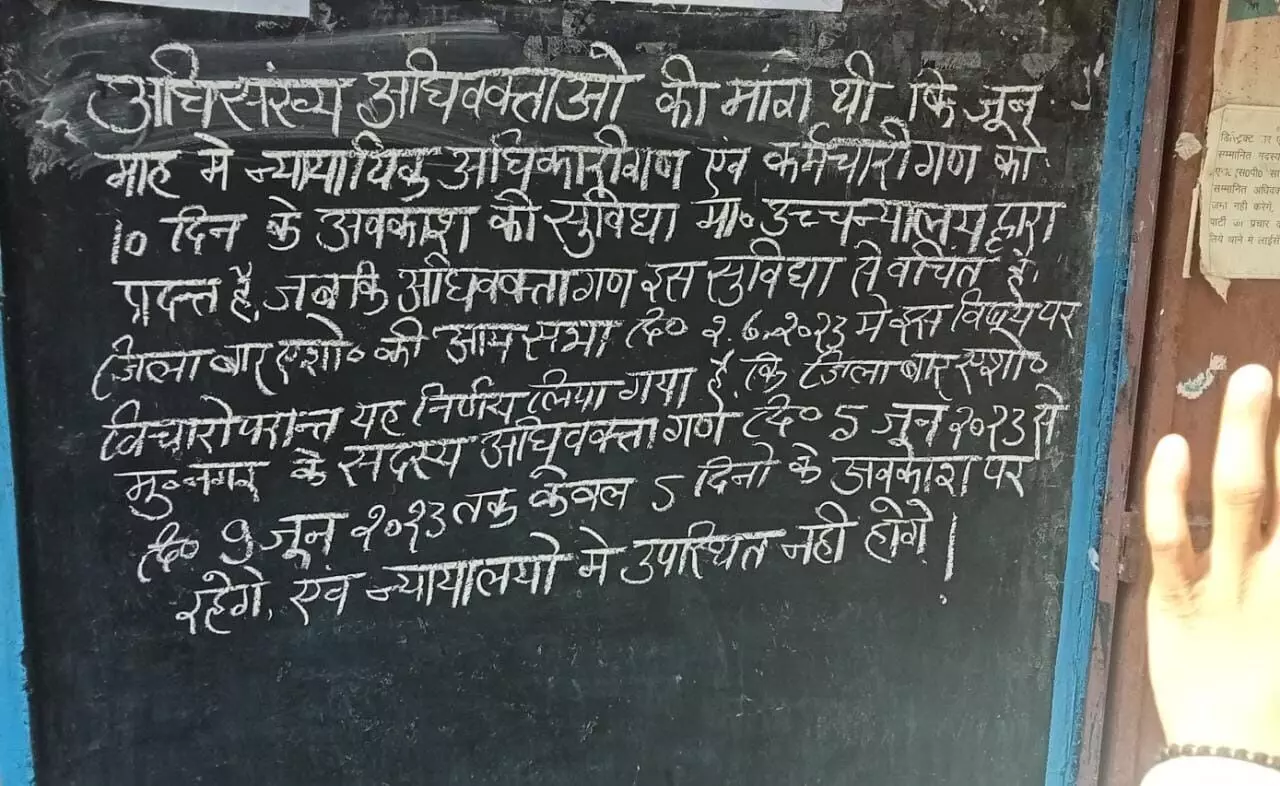 अधिसंख्य अधिवक्ताओ की मांग थी कि जून
माह मे न्यायायिक अधिकारीगण एवं कर्मचारीगण को
10 दिन के अवकाश की सुविधा मा० उच्चन्यालय द्वारा
प्रदत्त है, जबकि अधिवक्तागण इस सुविधा से वंचित है,
जिला बार एशो० की आम सभा दि० २.6.२०२३ मे इस विषय पर
विचारोपरान्त यह निर्णय लिया गया है कि जिला बार एशो०
मु०नगर के सदस्य अधिवक्तागण दि० 5 जून २०२३ से
दि० 9 जून २०२३ तक केवल 5 दिनो के अवकाश पर
रहेगे, एवं न्यायालयो मे उपस्थित नही होगे।
सम्मानित
सम्मानित अधिवक
जमा नही करेंगे,
पार्टी का प्रचार
लिये थाने मे